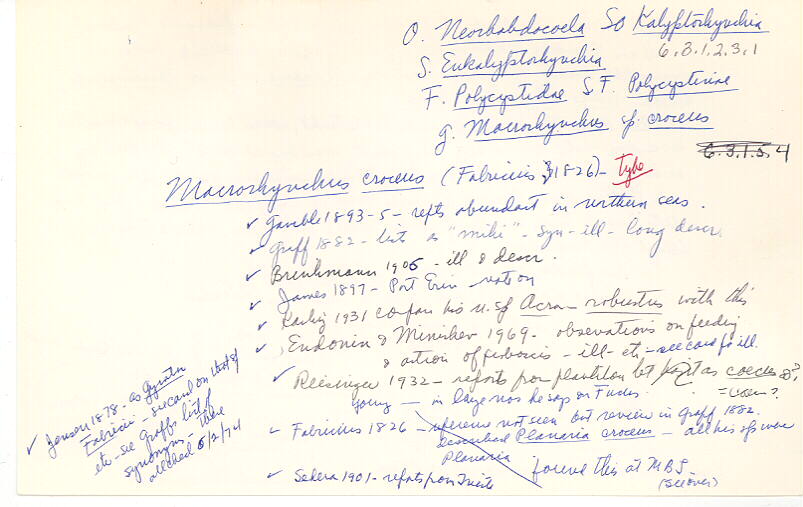 O. Neorhabdocoela SO Kalyptorhynchia
6.3.1.2.3.1
S. Eukalyptorhynchia
F. Polycystidae S.F. Polycystinae
g. Macrorhynchus sp. croceus
6.3.1.5.4
Macrorhynchus croceus (Fabricius, 1826) - Type
✓ Gamble 1893-5 - repts abundant in northern seas.
✓ Graff 1882 - lists as "mihi" - syn - ill - long descr.
✓ Brinkmann 1905 - ill & descr.
✓ James 1897 - Port Erin - not on
✓ Karling 1931 compares his n. sp Acro- robustus with this
✓ Evdonin & Minichev 1969 - observations on feeding
& action of proboscis - ill - etc - see card for ill.
✓ Reisinger 1932 - reports from plankton but as coecus?
young - in large nos he says on Fucus. = croceus?
- Fabricius 1826 - reference not seen but review in Graff 1882.
described Planaria croceus - all his sps were
Planaria
found this at MBL
(see over)
✓ Sekera 1901 - reports from Trieste
✓ Jensen 1878 - as Gyrator
Fabricii - see card on that sp
etc - see Graffs list of
synonyms - these
all checked 5/2/74